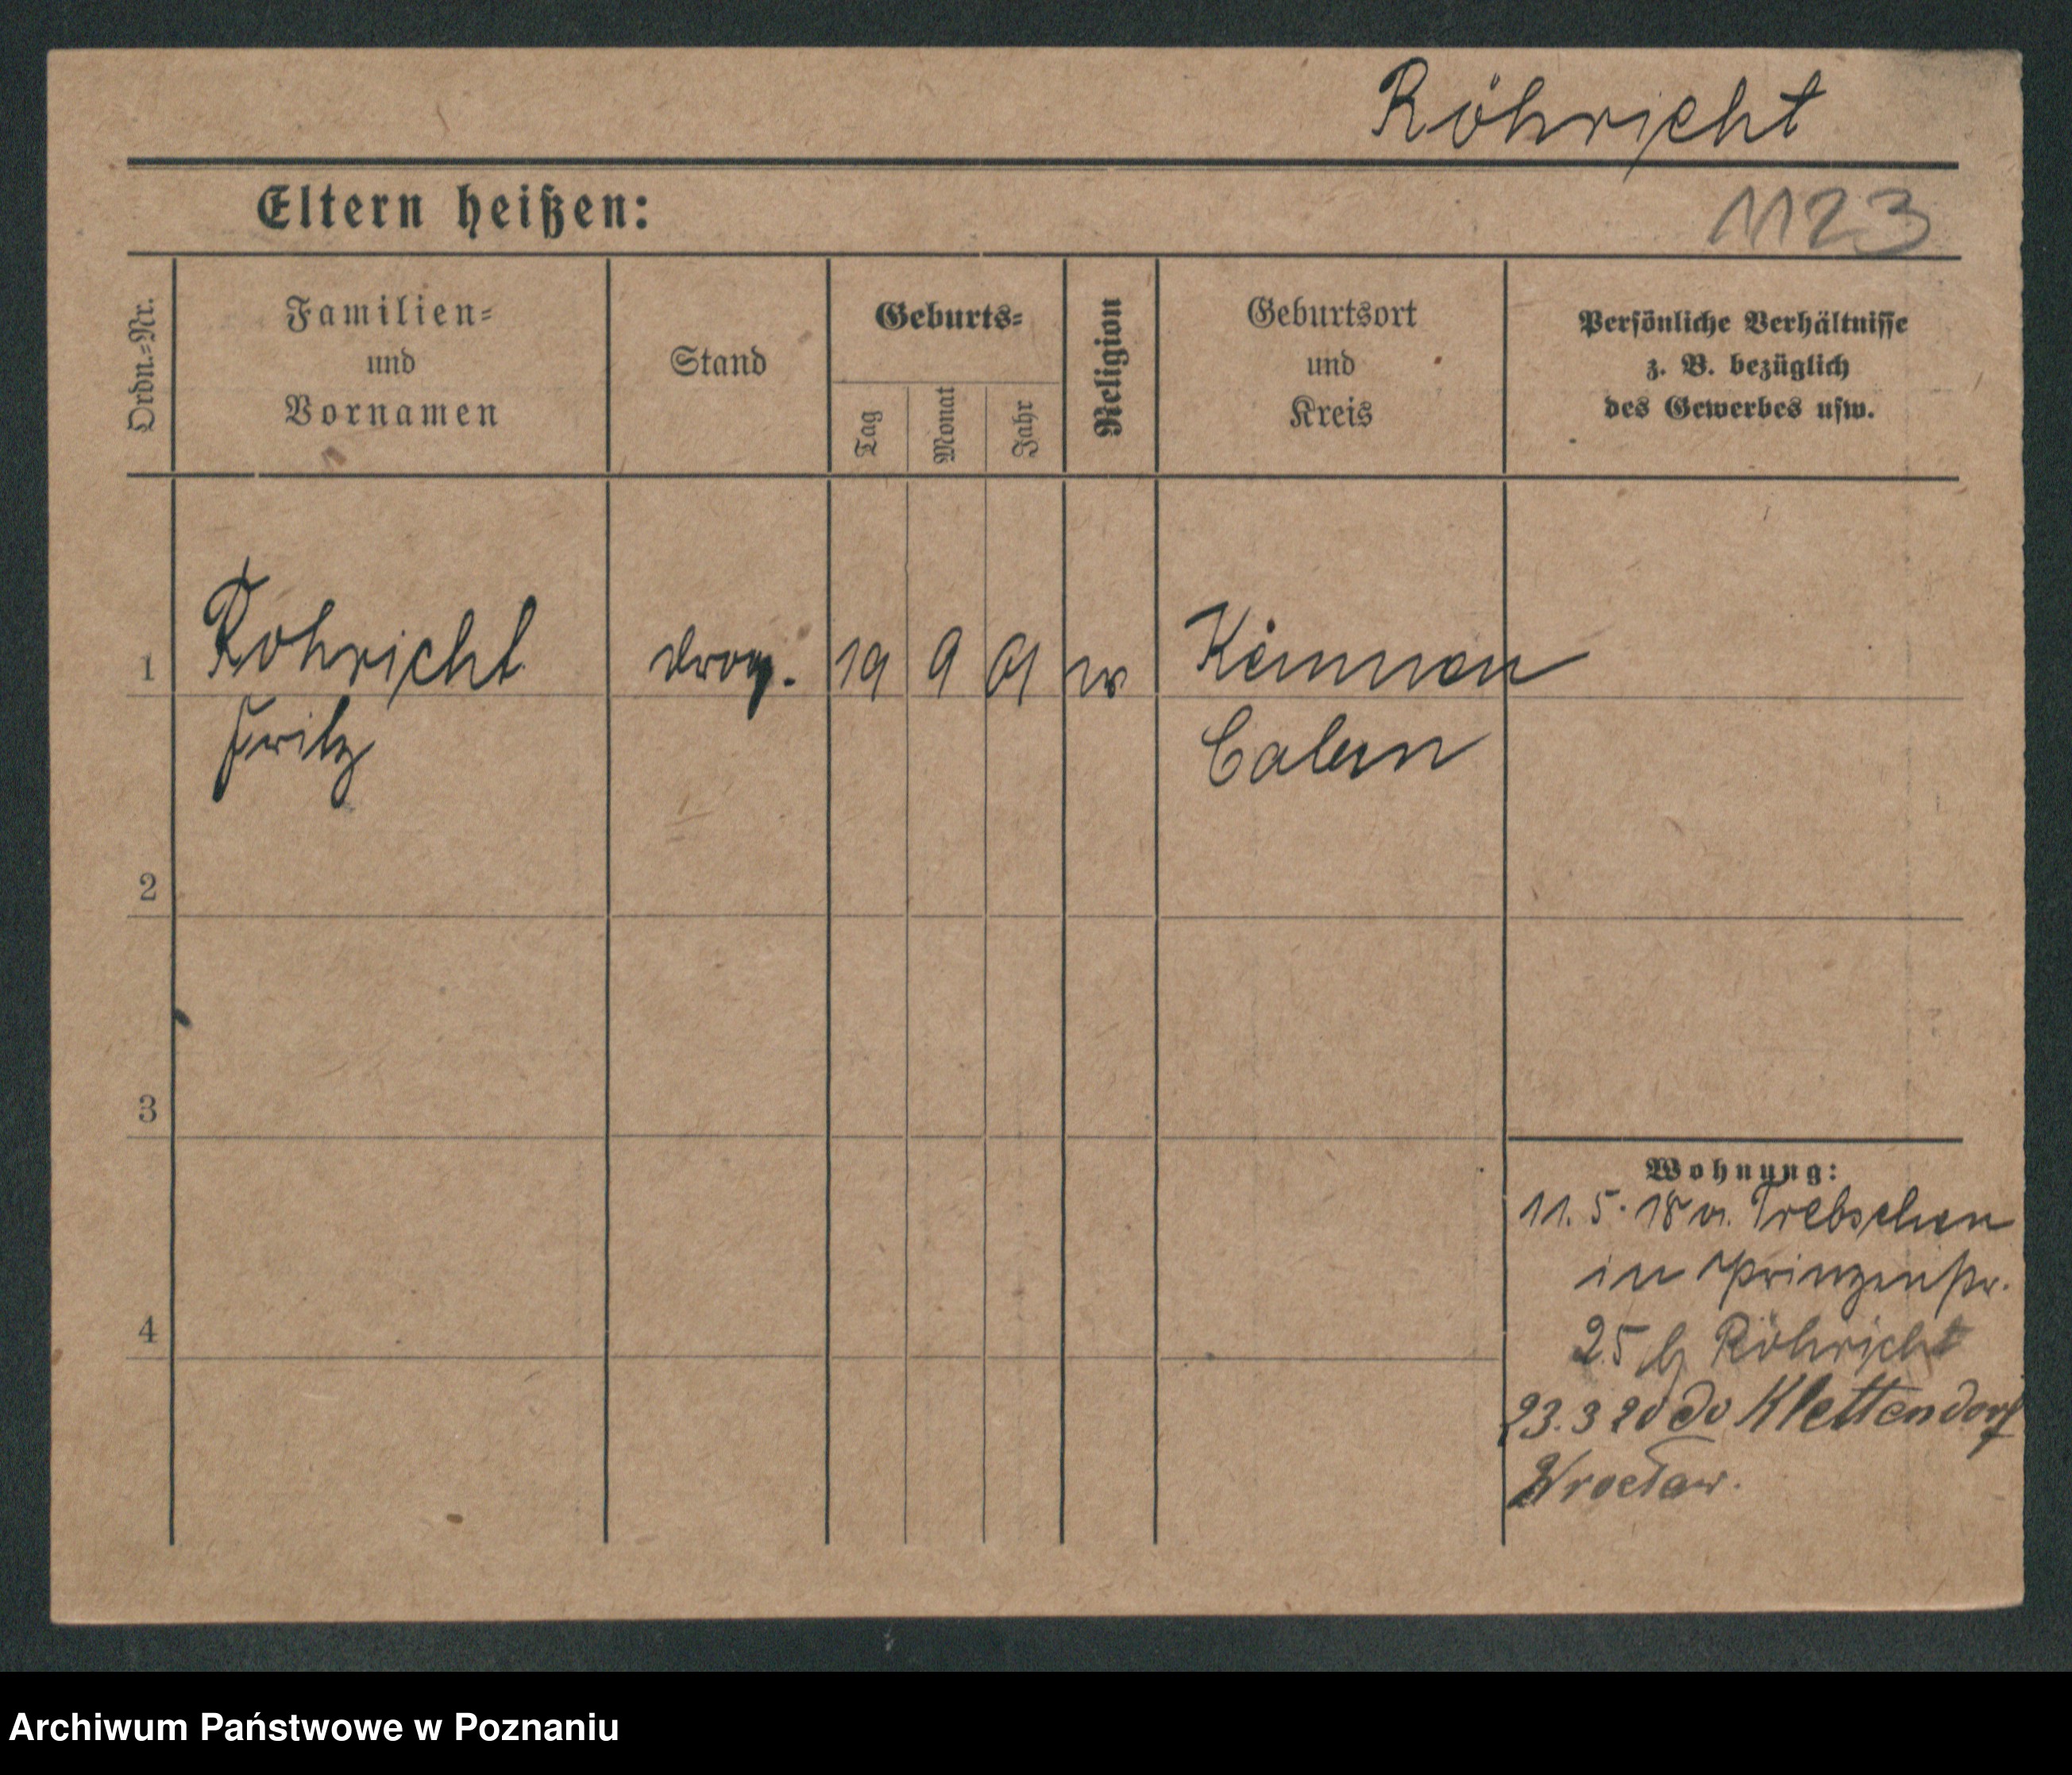 Röhricht
Eltern heißen:
1123
Ordn.-Nr.
Familien-
und
Vornamen
Stand
Geburts-
Tag
Monat
Jahr
Religion
Geburtsort
und
Kreis
Persönliche Verhältnisse
z. B. bezüglich
des Gewerbes usw.
1
Röhricht
Fritz
drog.
19
9
01
Calau
2
3
4
Wohnung:
11. 5. 18 v. Trebschen
in Prinzenstr.
25 b Röhricht
23. 3 20 do Klettendorf
Wrocław.
Archiwum Państwowe w Poznaniu